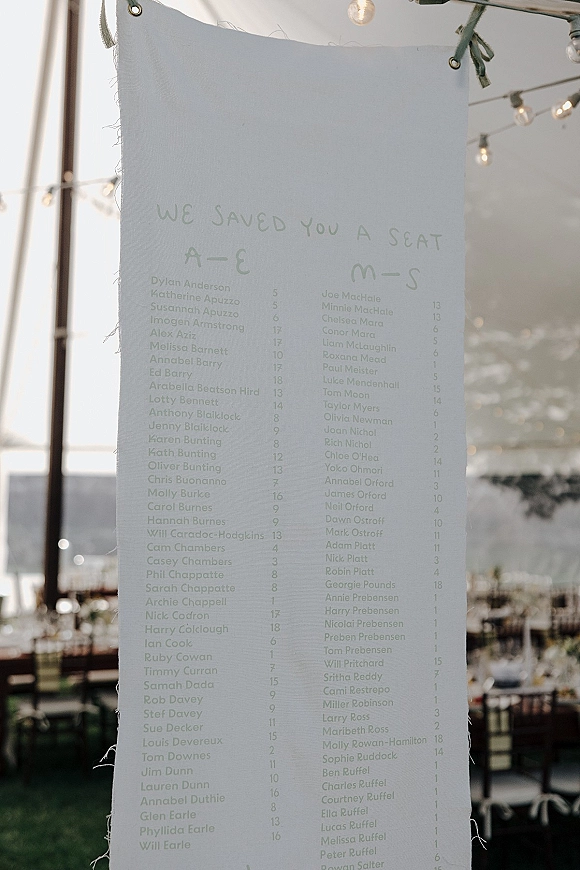 WE SAVED YOU A SEAT
A–E
Dylan Anderson 5
Katherine Apuzzo 5
Susannah Apuzzo 6
Imogen Armstrong 17
Alex Aziz 17
Melissa Barnett 10
Annabel Barry 17
Ed Barry 18
Arabella Beatson Hird 13
Lotty Bennett 14
Anthony Blaiklock 8
Jenny Blaiklock 9
Karen Bunting 8
Kath Bunting 12
Oliver Bunting 13
Chris Buonanno 7
Molly Burke 16
Carol Burnes 9
Hannah Burnes 9
Will Caradoc-Hodgkins 13
Cam Chambers 4
Casey Chambers 3
Phil Chappatte 8
Sarah Chappatte 8
Archie Chappell 1
Nick Codron 17
Harry Colclough 18
Ian Cook 6
Ruby Cowan 1
Timmy Curran 7
Samah Dada 15
Rob Davey 9
Stef Davey 9
Sue Decker 11
Louis Devereux 15
Tom Downes 2
Jim Dunn 11
Lauren Dunn 10
Annabel Duthie 16
Glen Earle 8
Phyllida Earle 13
Will Earle 16
M–S
Joe MacHale 13
Minnie MacHale 13
Chelsea Mara 6
Conor Mara 6
Liam McLaughlin 6
Roxana Mead 1
Paul Meister 5
Luke Mendenhall 15
Tom Moon 14
Taylor Myers 6
Olivia Newman 1
Joan Nichol 2
Rich Nichol 2
Chloe O'Hea 14
Yoko Ohmori 11
Annabel Orford 3
James Orford 10
Neil Orford 4
Dawn Ostroff 10
Mark Ostroff 11
Adam Platt 11
Nick Platt 3
Robin Platt 4
Georgie Pounds 18
Annie Prebensen 1
Harry Prebensen 1
Nicolai Prebensen 1
Preben Prebensen 1
Tom Prebensen 1
Will Pritchard 15
Sritha Reddy 7
Cami Restrepo 1
Miller Robinson 1
Larry Ross 3
Maribeth Ross 2
Molly Rowan-Hamilton 18
Sophie Ruddock 14
Ben Ruffel 1
Charles Ruffel 1
Courtney Ruffel 1
Ella Ruffel 1
Lucas Ruffel 1
Melissa Ruffel 1
Peter Ruffel 1
Rowan Salter 6